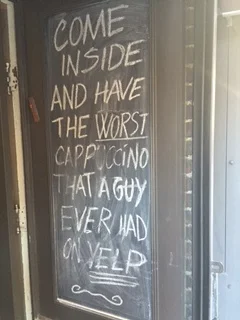 COME
INSIDE
AND HAVE
THE WORST
CAPPUCCINO
THAT A GUY
EVER HAD
ON YELP